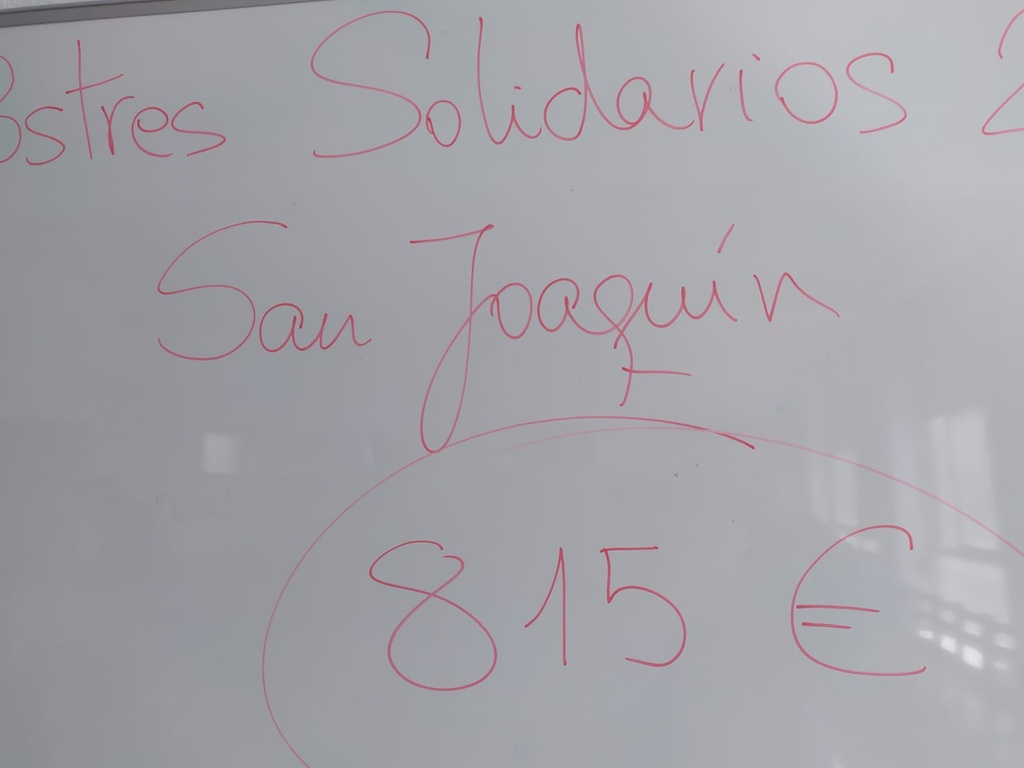 ostres Solidarios 2
San Joaquín
815 €